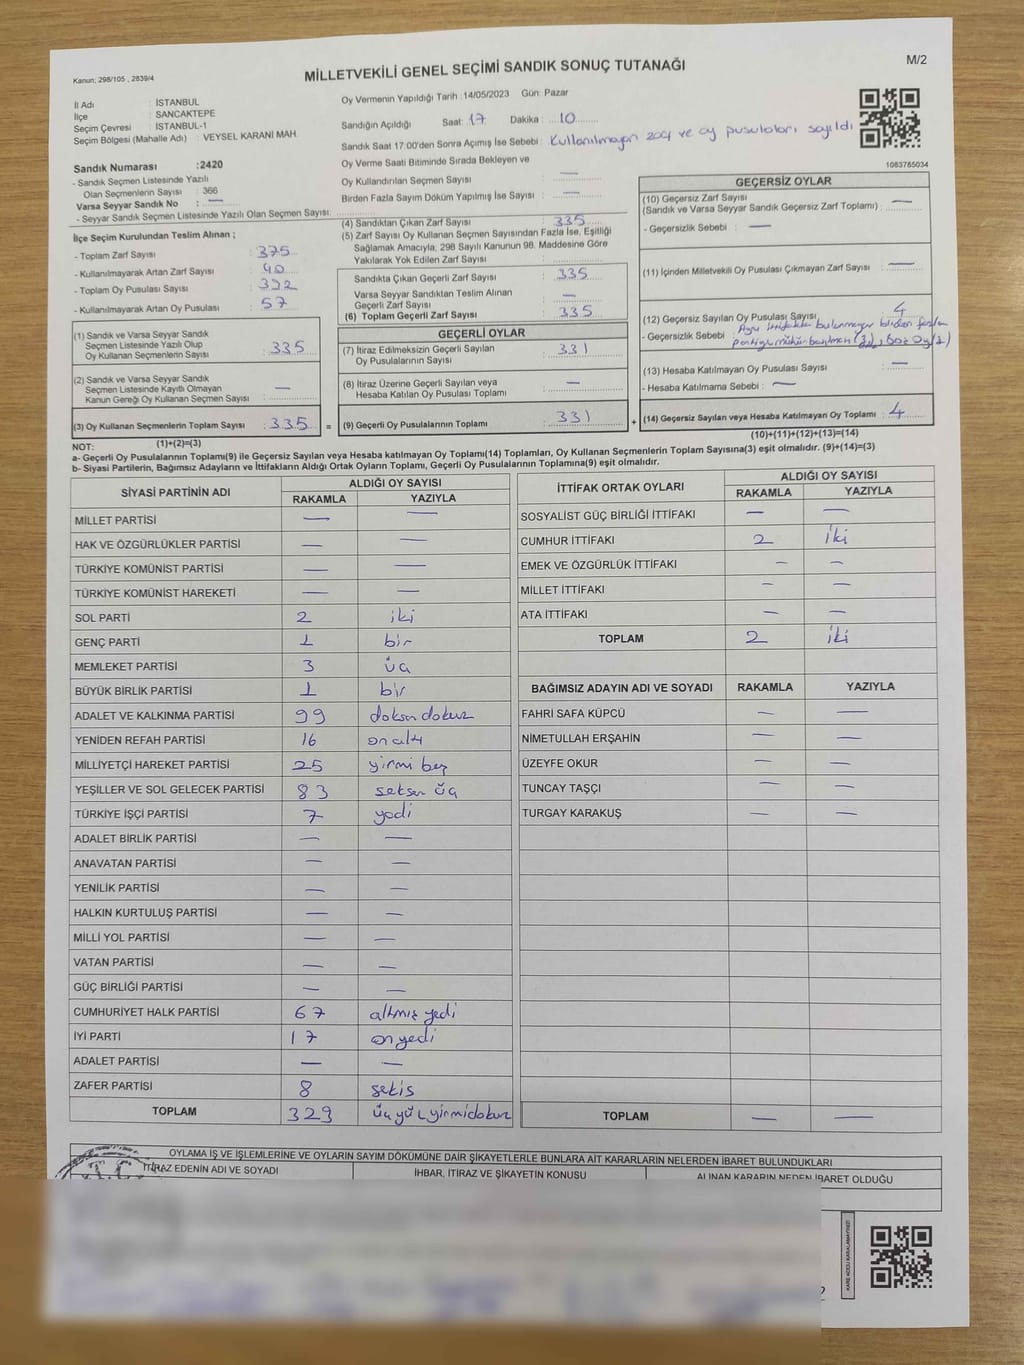 Kanun: 298/105 , 2839/4
MİLLETVEKİLİ GENEL SEÇİMİ SANDIK SONUÇ TUTANAĞI
M/2
İl Adı : İSTANBUL
İlçe : SANCAKTEPE
Seçim Çevresi : İSTANBUL-1
Seçim Bölgesi (Mahalle Adı) : VEYSEL KARANİ MAH.
Oy Vermenin Yapıldığı Tarih :14/05/2023 Gün: Pazar
Sandığın Açıldığı Saat: 17 Dakika : 10
Sandık Saat 17:00'den Sonra Açımış İse Sebebi : Kullanılmayan zarf ve oy pusulaları sayıldı
1083785034
Sandık Numarası :2420
- Sandık Seçmen Listesinde Yazılı
Olan Seçmenlerin Sayısı : 366
Varsa Seyyar Sandık No : —
- Seyyar Sandık Seçmen Listesinde Yazılı Olan Seçmen Sayısı:
Oy Verme Saati Bitiminde Sırada Bekleyen ve
Oy Kullandırılan Seçmen Sayısı : —
Birden Fazla Sayım Döküm Yapılmış İse Sayısı : —
İlçe Seçim Kurulundan Teslim Alınan ;
- Toplam Zarf Sayısı : 375
- Kullanılmayarak Artan Zarf Sayısı : 40
- Toplam Oy Pusulası Sayısı : 392
- Kullanılmayarak Artan Oy Pusulası : 57
(1) Sandık ve Varsa Seyyar Sandık
Seçmen Listesinde Yazılı Olup
Oy Kullanan Seçmenlerin Sayısı : 335
(2) Sandık ve Varsa Seyyar Sandık
Seçmen Listesinde Kayıtlı Olmayan
Kanun Gereği Oy Kullanan Seçmen Sayısı : —
(3) Oy Kullanan Seçmenlerin Toplam Sayısı : 335 =
(1)+(2)=(3)
(4) Sandıktan Çıkan Zarf Sayısı : 335
(5) Zarf Sayısı Oy Kullanan Seçmen Sayısından Fazla İse, Eşitliği
Sağlamak Amacıyla, 298 Sayılı Kanunun 98. Maddesine Göre
Yakılarak Yok Edilen Zarf Sayısı :
Sandıkta Çıkan Geçerli Zarf Sayısı : 335
Varsa Seyyar Sandıktan Teslim Alınan
Geçerli Zarf Sayısı : —
(6) Toplam Geçerli Zarf Sayısı : 335
GEÇERLİ OYLAR
(7) İtiraz Edilmeksizin Geçerli Sayılan
Oy Pusulalarının Sayısı : 331
(8) İtiraz Üzerine Geçerli Sayılan veya
Hesaba Katılan Oy Pusulası Toplamı : —
(9) Geçerli Oy Pusulalarının Toplamı : 331 +
GEÇERSİZ OYLAR
(10) Geçersiz Zarf Sayısı
(Sandık ve Varsa Seyyar Sandık Geçersiz Zarf Toplamı) : —
- Geçersizlik Sebebi : —
(11) İçinden Milletvekili Oy Pusulası Çıkmayan Zarf Sayısı : —
(12) Geçersiz Sayılan Oy Pusulası Sayısı : 4
- Geçersizlik Sebebi : Aynı ittifakta bulunmayan birden fazla
(13) Hesaba Katılmayan Oy Pusulası Sayısı : —
- Hesaba Katılmama Sebebi : —
(14) Geçersiz Sayılan veya Hesaba Katılmayan Oy Toplamı : 4
(10)+(11)+(12)+(13)=(14)
NOT:
a- Geçerli Oy Pusulalarının Toplamı(9) ile Geçersiz Sayılan veya Hesaba katılmayan Oy Toplamı(14) Toplamları, Oy Kullanan Seçmenlerin Toplam Sayısına(3) eşit olmalıdır. (9)+(14)=(3)
b- Siyasi Partilerin, Bağımsız Adayların ve İttifakların Aldığı Ortak Oyların Toplamı, Geçerli Oy Pusulalarının Toplamına(9) eşit olmalıdır.
SİYASİ PARTİNİN ADI ALDIĞI OY SAYISI
RAKAMLA YAZIYLA
MİLLET PARTİSİ — —
HAK VE ÖZGÜRLÜKLER PARTİSİ — —
TÜRKİYE KOMÜNİST PARTİSİ — —
TÜRKİYE KOMÜNİST HAREKETİ — —
SOL PARTİ 2 iki
GENÇ PARTİ 1 bir
MEMLEKET PARTİSİ 3 üç
BÜYÜK BİRLİK PARTİSİ 1 bir
ADALET VE KALKINMA PARTİSİ 99 doksan dokuz
YENİDEN REFAH PARTİSİ 16 on altı
MİLLİYETÇİ HAREKET PARTİSİ 25 yirmi beş
YEŞİLLER VE SOL GELECEK PARTİSİ 83 seksen üç
TÜRKİYE İŞÇİ PARTİSİ 7 yedi
ADALET BİRLİK PARTİSİ — —
ANAVATAN PARTİSİ — —
YENİLİK PARTİSİ — —
HALKIN KURTULUŞ PARTİSİ — —
MİLLİ YOL PARTİSİ — —
VATAN PARTİSİ — —
GÜÇ BİRLİĞİ PARTİSİ — —
CUMHURİYET HALK PARTİSİ 67 altmış yedi
İYİ PARTİ 17 on yedi
ADALET PARTİSİ — —
ZAFER PARTİSİ 8 sekiz
TOPLAM 329 üç yüz yirmidokuz
İTTİFAK ORTAK OYLARI ALDIĞI OY SAYISI
RAKAMLA YAZIYLA
SOSYALİST GÜÇ BİRLİĞİ İTTİFAKI — —
CUMHUR İTTİFAKI 2 iki
EMEK VE ÖZGÜRLÜK İTTİFAKI — —
MİLLET İTTİFAKI — —
ATA İTTİFAKI — —
TOPLAM 2 iki
BAĞIMSIZ ADAYIN ADI VE SOYADI RAKAMLA YAZIYLA
FAHRİ SAFA KÜPCÜ — —
NİMETULLAH ERŞAHİN — —
ÜZEYFE OKUR — —
TUNCAY TAŞÇI — —
TURGAY KARAKUŞ — —
TOPLAM — —
OYLAMA İŞ VE İŞLEMLERİNE VE OYLARIN SAYIM DÖKÜMÜNE DAİR ŞİKAYETLERLE BUNLARA AİT KARARLARIN NELERDEN İBARET BULUNDUKLARI
İTİRAZ EDENİN ADI VE SOYADI İHBAR, İTİRAZ VE ŞİKAYETİN KONUSU ALINAN KARARIN NEDEN İBARET OLDUĞU